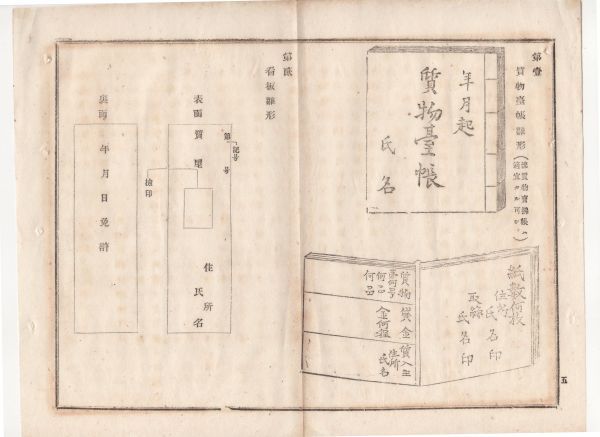 第壹
質物臺帳雛形
年月起
質物臺帳
氏名
紙數何枚
住所
氏名印
取締
氏名印
質物
第何号
何品
何品
貸金
金何程
質入主
住所
氏名
五
第貳
看板雛形
表面
質屋
第
記号
号
檢印
住所
氏名
裏面
年月日免許